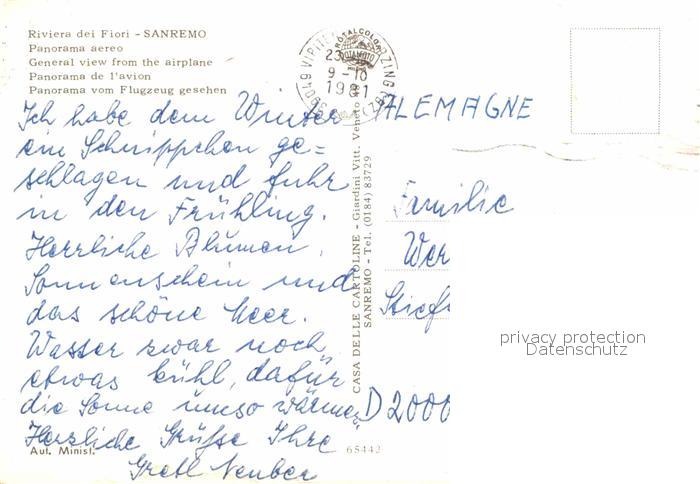 Riviera dei Fiori - SANREMO
Panorama aereo
General view from the airplane
Panorama de l'avion
Panorama vom Flugzeug gesehen
Ich habe dem Winter
ein Schnippchen ge=
schlagen und fuhr
in den Frühling.
Herrliche Blumen,
Sonnenschein und
das schöne Meer.
Wasser zwar noch
etwas kühl, dafür
die Sonne umso wärmer.
Herzliche Grüße Ihre
Gretl Neuber
Aut. Minist.
65442
CASA DELLE CARTOLINE - Giardini Vitt. Veneto
SANREMO - Tel. (0184) 83729
39049 VIPITENO
9-10
1981
ROTALCOLOR
ROTALFOTO
ALEMAGNE
Familie
Wer
D 2000
privacy protection
Datenschutz